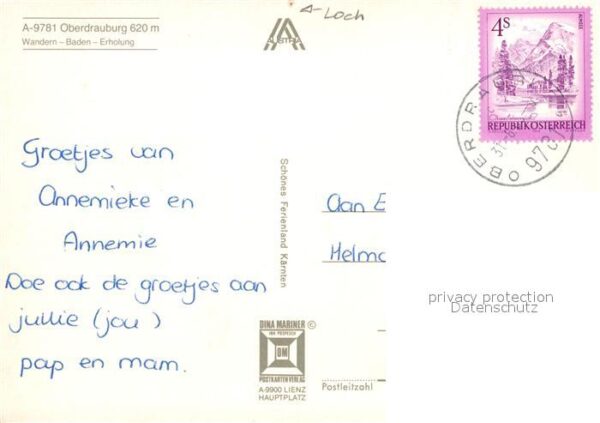 A-9781 Oberdrauburg 620 m
Wandern – Baden – Erholung
AUSTRIA
Loch
4S
ALMSEE
REPUBLIK ÖSTERREICH
OBERDRA
9781
Groetjes van
Annemieke en
Annemie
Doe ook de groetjes aan
jullie (jou)
pap en mam.
Schönes Ferienland Kärnten
Aan E
Helmo
privacy protection
Datenschutz
DINA MARINER ©
DM
POSTKARTENVERLAG
A-9900 LIENZ
HAUPTPLATZ
Postleitzahl